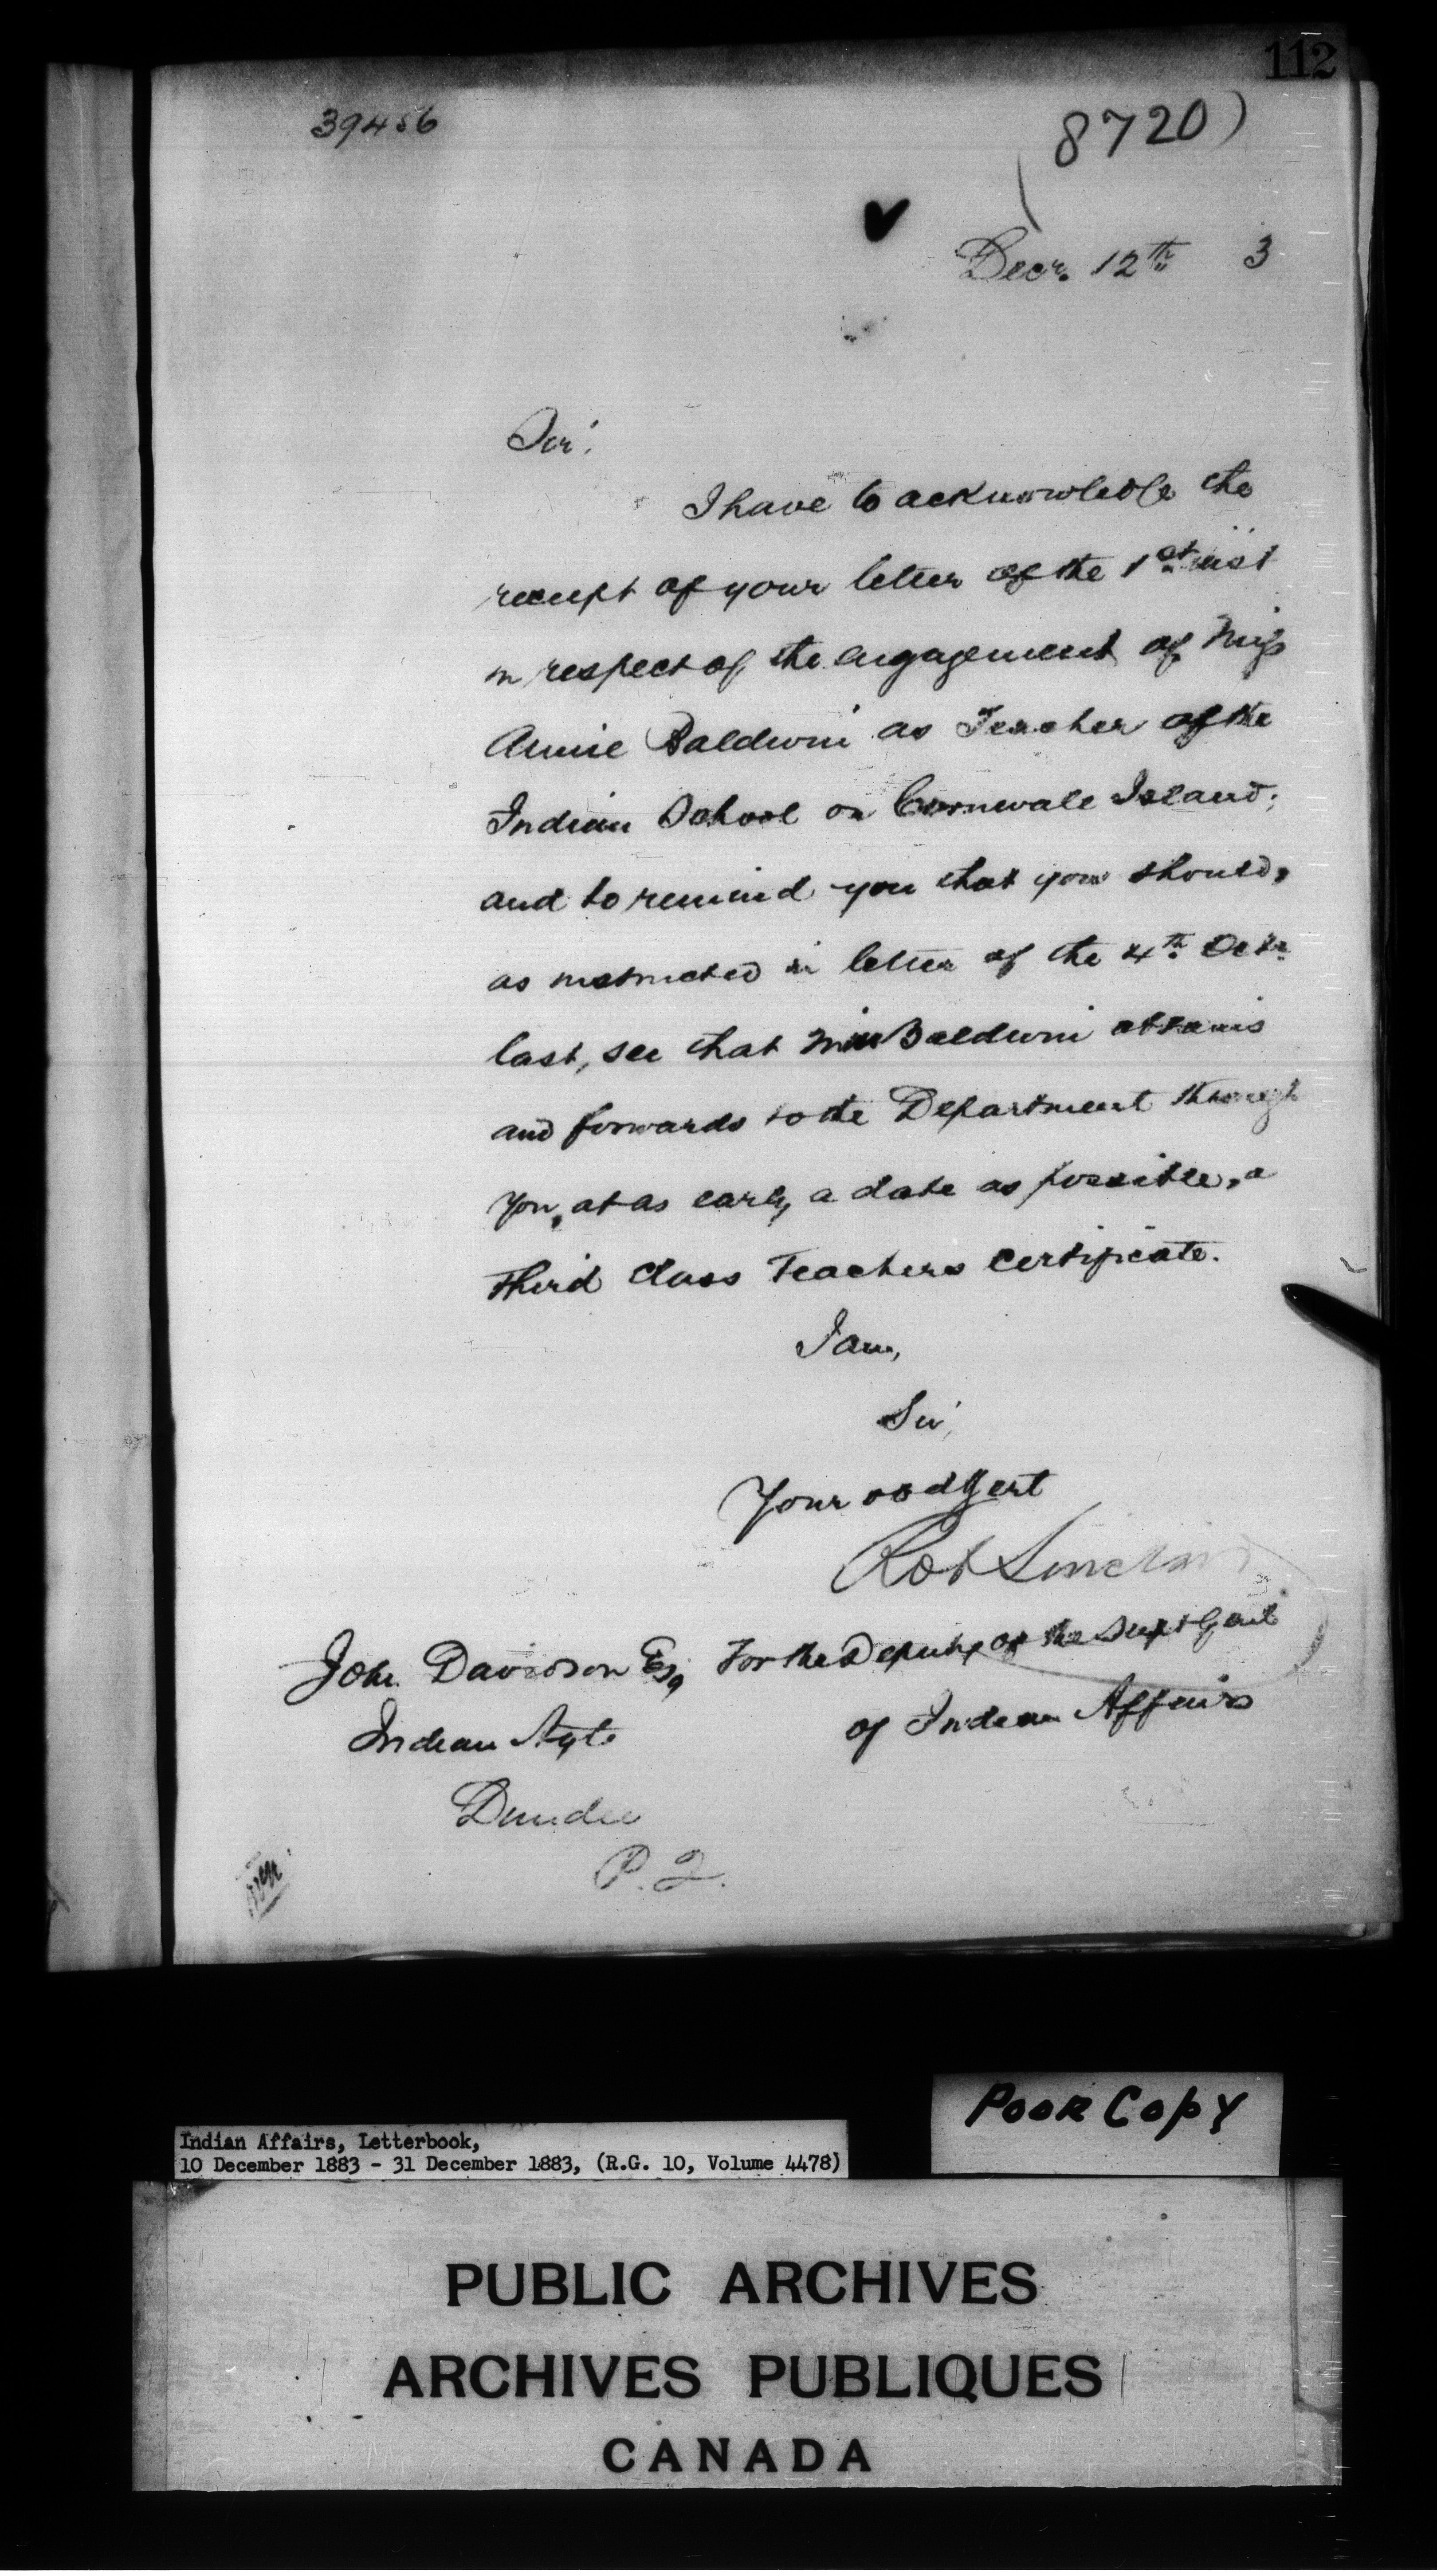 112
39456
(8720)
Decr. 12th 3
Sir,
I have to acknowledge the
receipt of your letter of the 1st inst
in respect of the engagement of Miss
Annie Baldwin as Teacher of the
Indian School on Cornwall Island;
and to remind you that you should,
as instructed in letter of the 4th Octr.
last, see that Miss Baldwin obtains
and forwards to the Department through
you, at as early a date as possible, a
third Class Teachers Certificate.
I am,
Sir,
Your obdt Sert
Robt Sinclair
John Davidson Esq For the Deputy of the Supt Genl
Indian Agt. of Indian Affairs
Dundee
P.Q.
Poor Copy
Indian Affairs, Letterbook,
10 December 1883 - 31 December 1883, (R.G. 10, Volume 4478)
PUBLIC ARCHIVES
ARCHIVES PUBLIQUES
CANADA